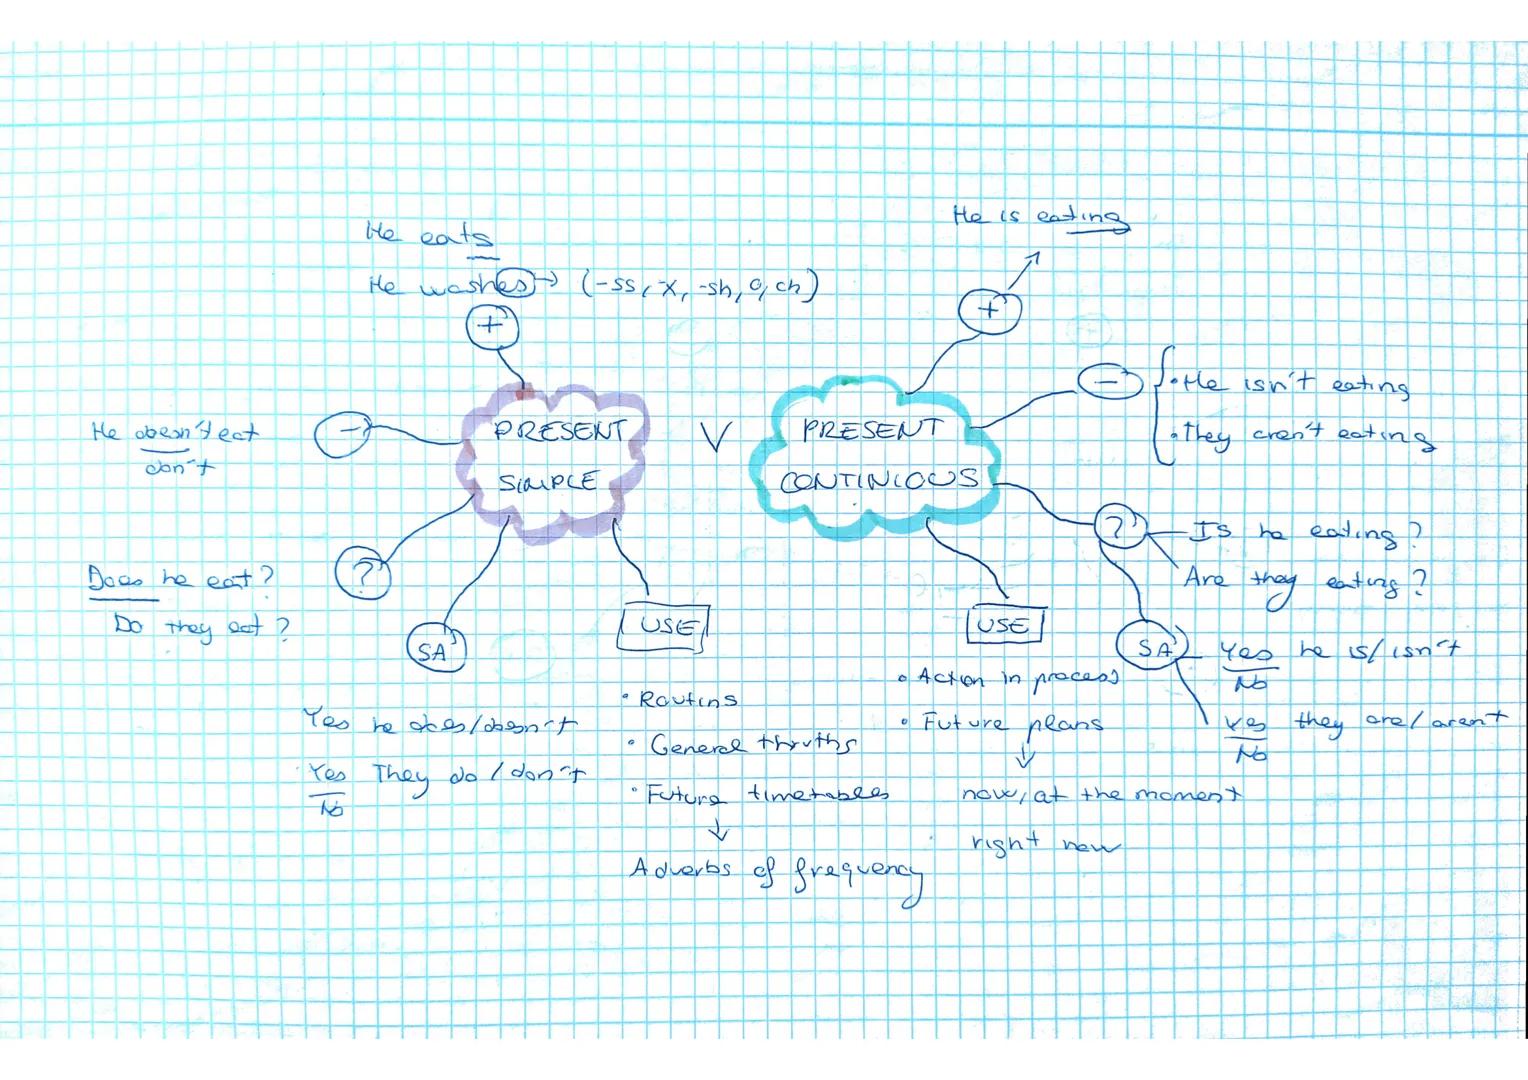 He eats
He washes → (-ss, -x, -sh, o, ch)
+
-
He doesn't eat
don't
PRESENT
SIMPLE
?
Does he eat?
Do they eat?
SA
Yes he does/doesn't
Yes They do / don't
No
USE
• Routins
• General thruths
• Future timetables
↓
Adverbs of frequency
V
PRESENT
CONTINIOUS
+
He is eating
-
• He isn't eating
• They aren't eating
?
Is he eating?
Are they eating?
SA
Yes he is/isn't
No
Yes they are/arent
No
USE
• Action in process
• Future plans
↓
now, at the moment
right now